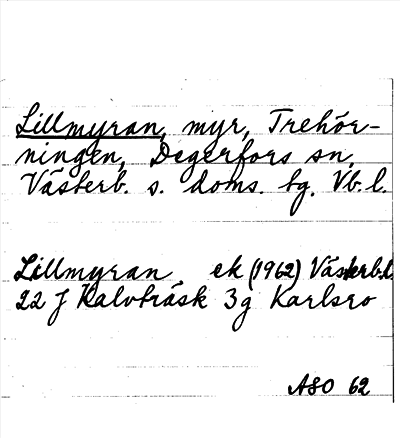 Lillmyran, myr, Trehör-
ningen, Degerfors sn,
Västerb. s. doms. tg. Vb. l.
Lillmyran ek (1962) Västerb.l.
22 J Kalvträsk 3g Karlsro
ASO 62